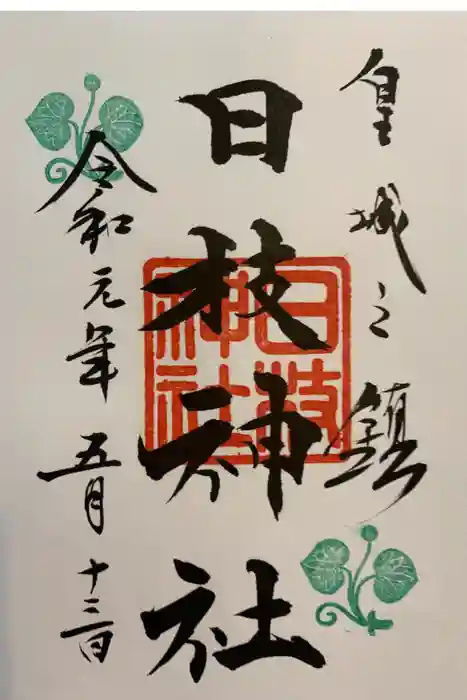 皇城之鎮
日枝神社
日枝神社
令和元年五月十三日